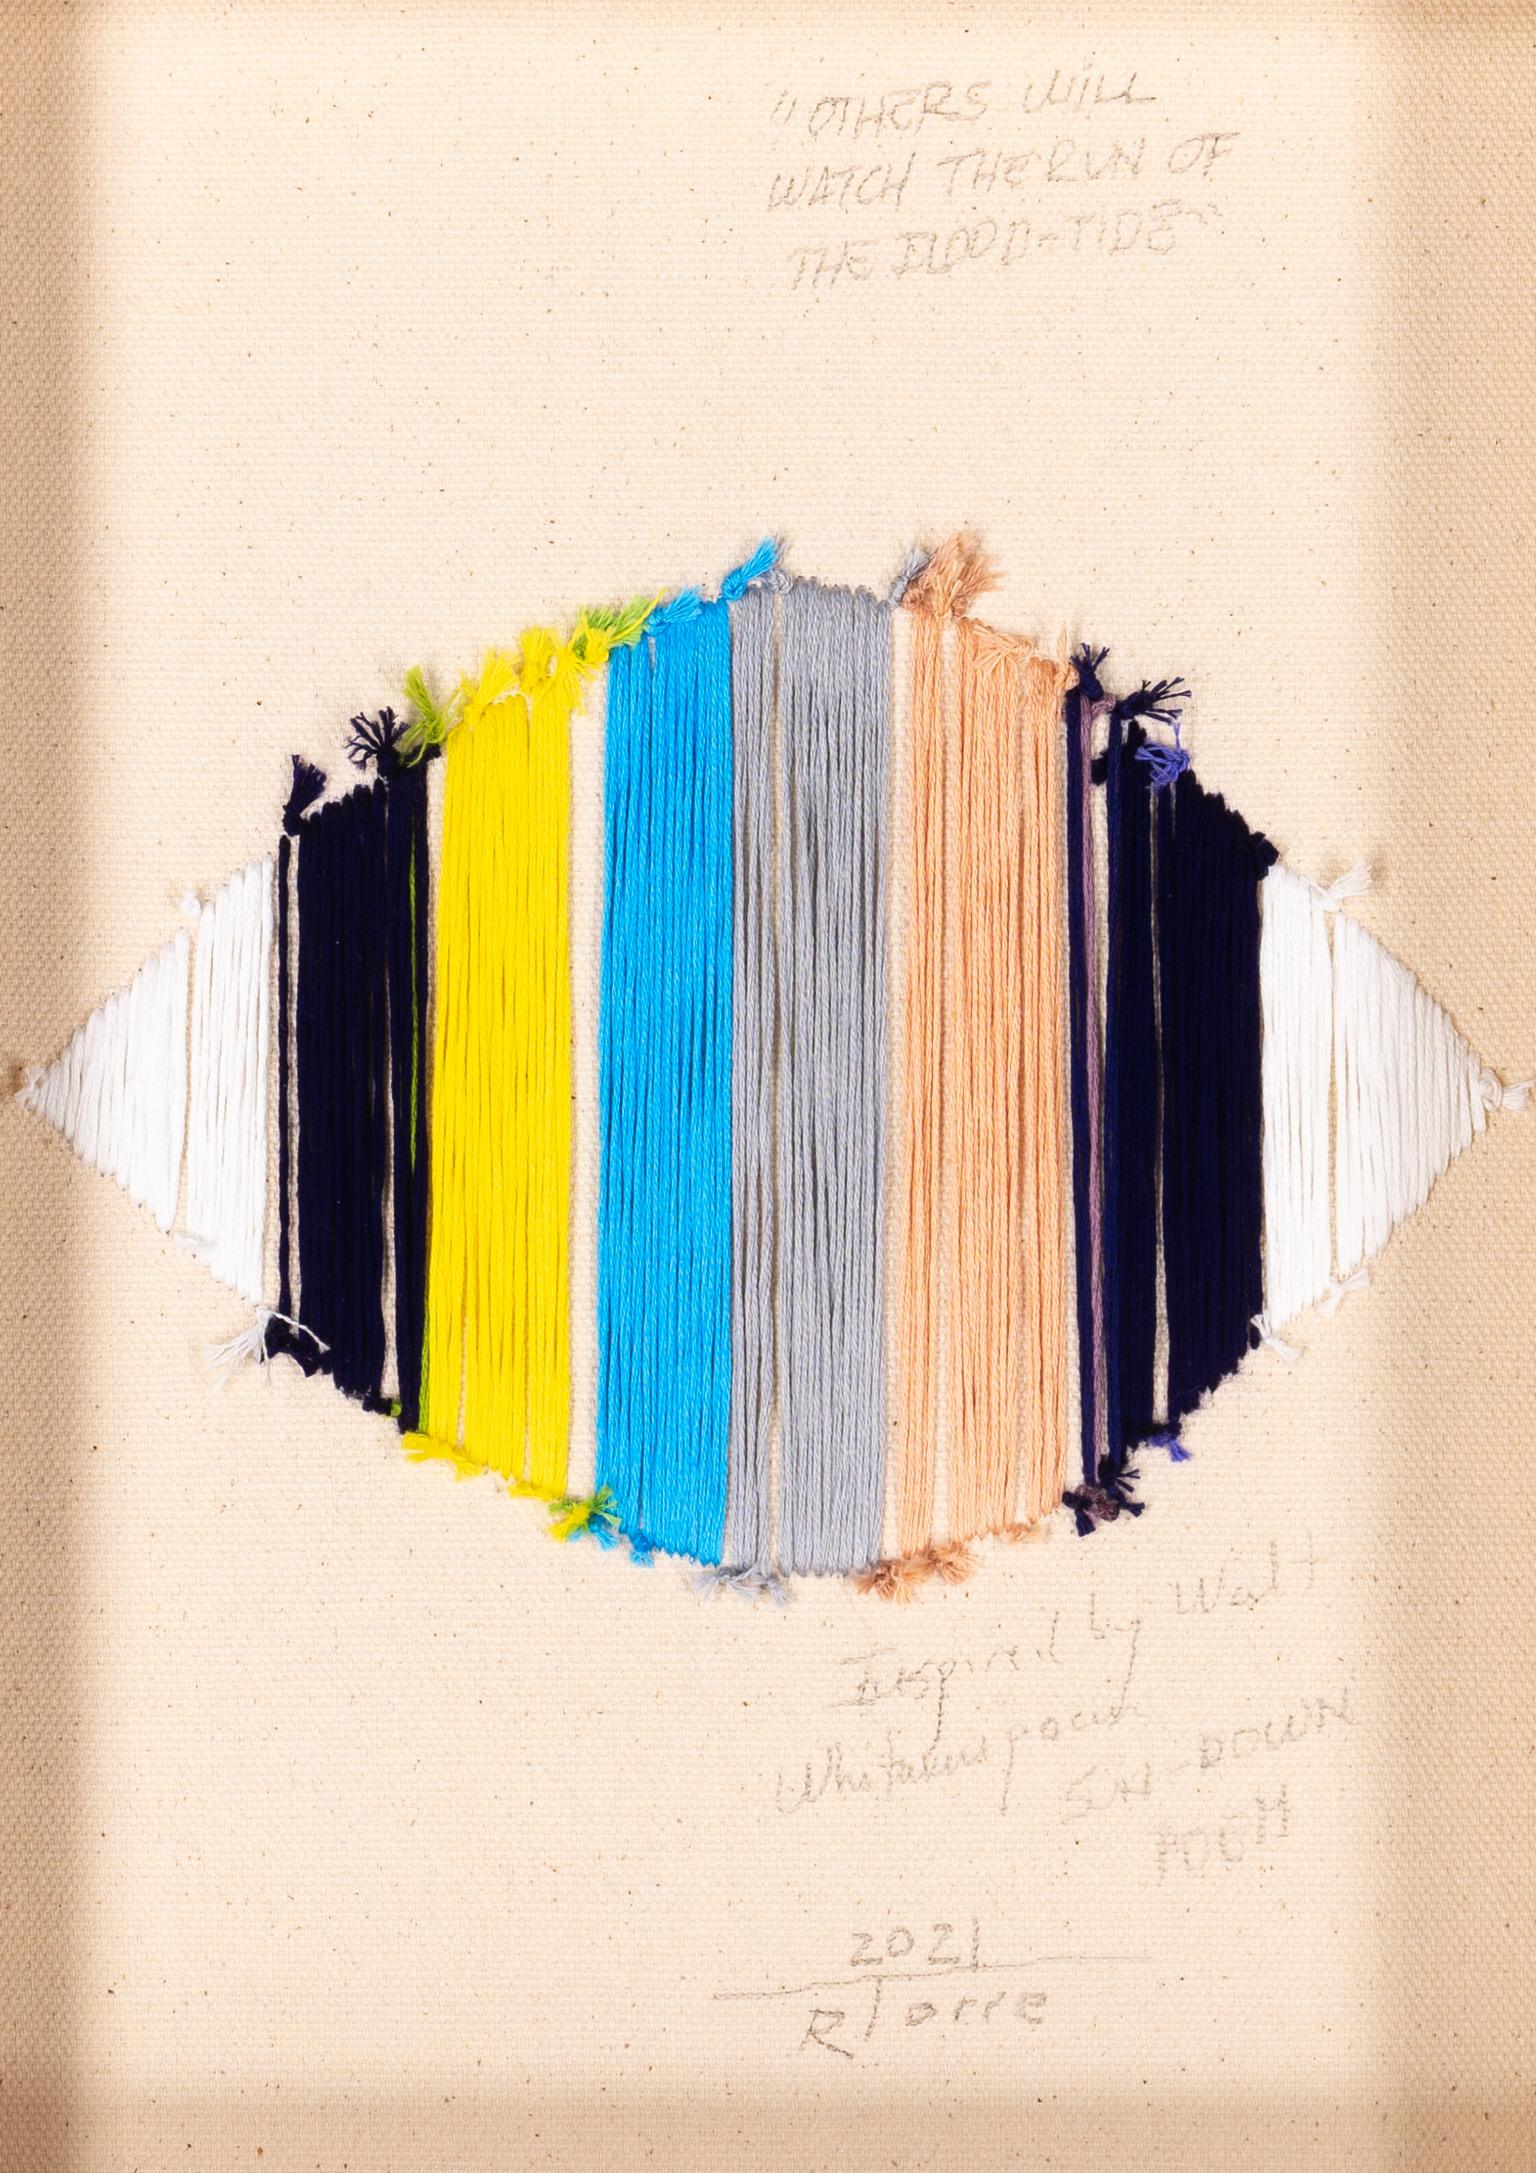 "OTHERS WILL
WATCH THE RUN OF
THE FLOOD-TIDE"
Inspired by Walt
Whitmans poem
SUN-DOWN
POEM
2021
RTorre